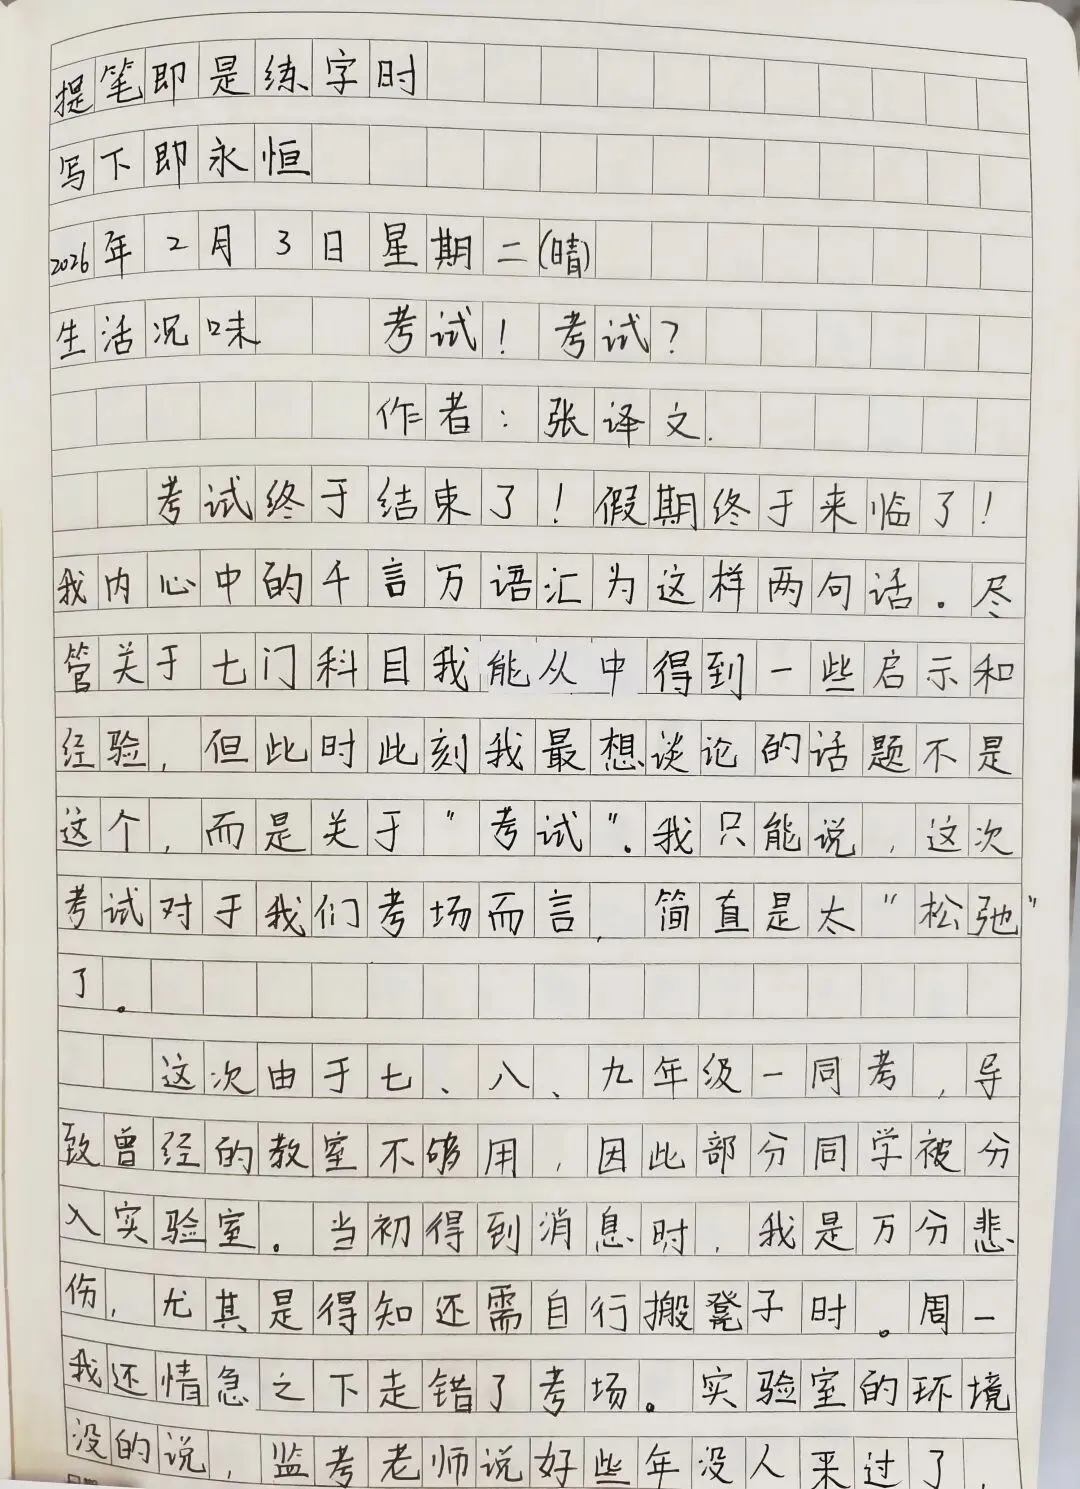 提笔即是练字时
写下即永恒
2026年2月3日星期二(晴)
生活况味 考试！考试？
作者：张译文.
考试终于结束了！假期终于来临了！
我内心中的千言万语汇为这样两句话。尽
管关于七门科目我能从中得到一些启示和
经验，但此时此刻我最想谈论的话题不是
这个，而是关于"考试"。我只能说，这次
考试对于我们考场而言，简直是太"松弛"
了。
这次由于七、八、九年级一同考，导
致曾经的教室不够用，因此部分同学被分
入实验室。当初得到消息时，我是万分悲
伤，尤其是得知还需自行搬凳子时。周一
我还情急之下走错了考场。实验室的环境
没的说，监考老师说好些年没人来过了，